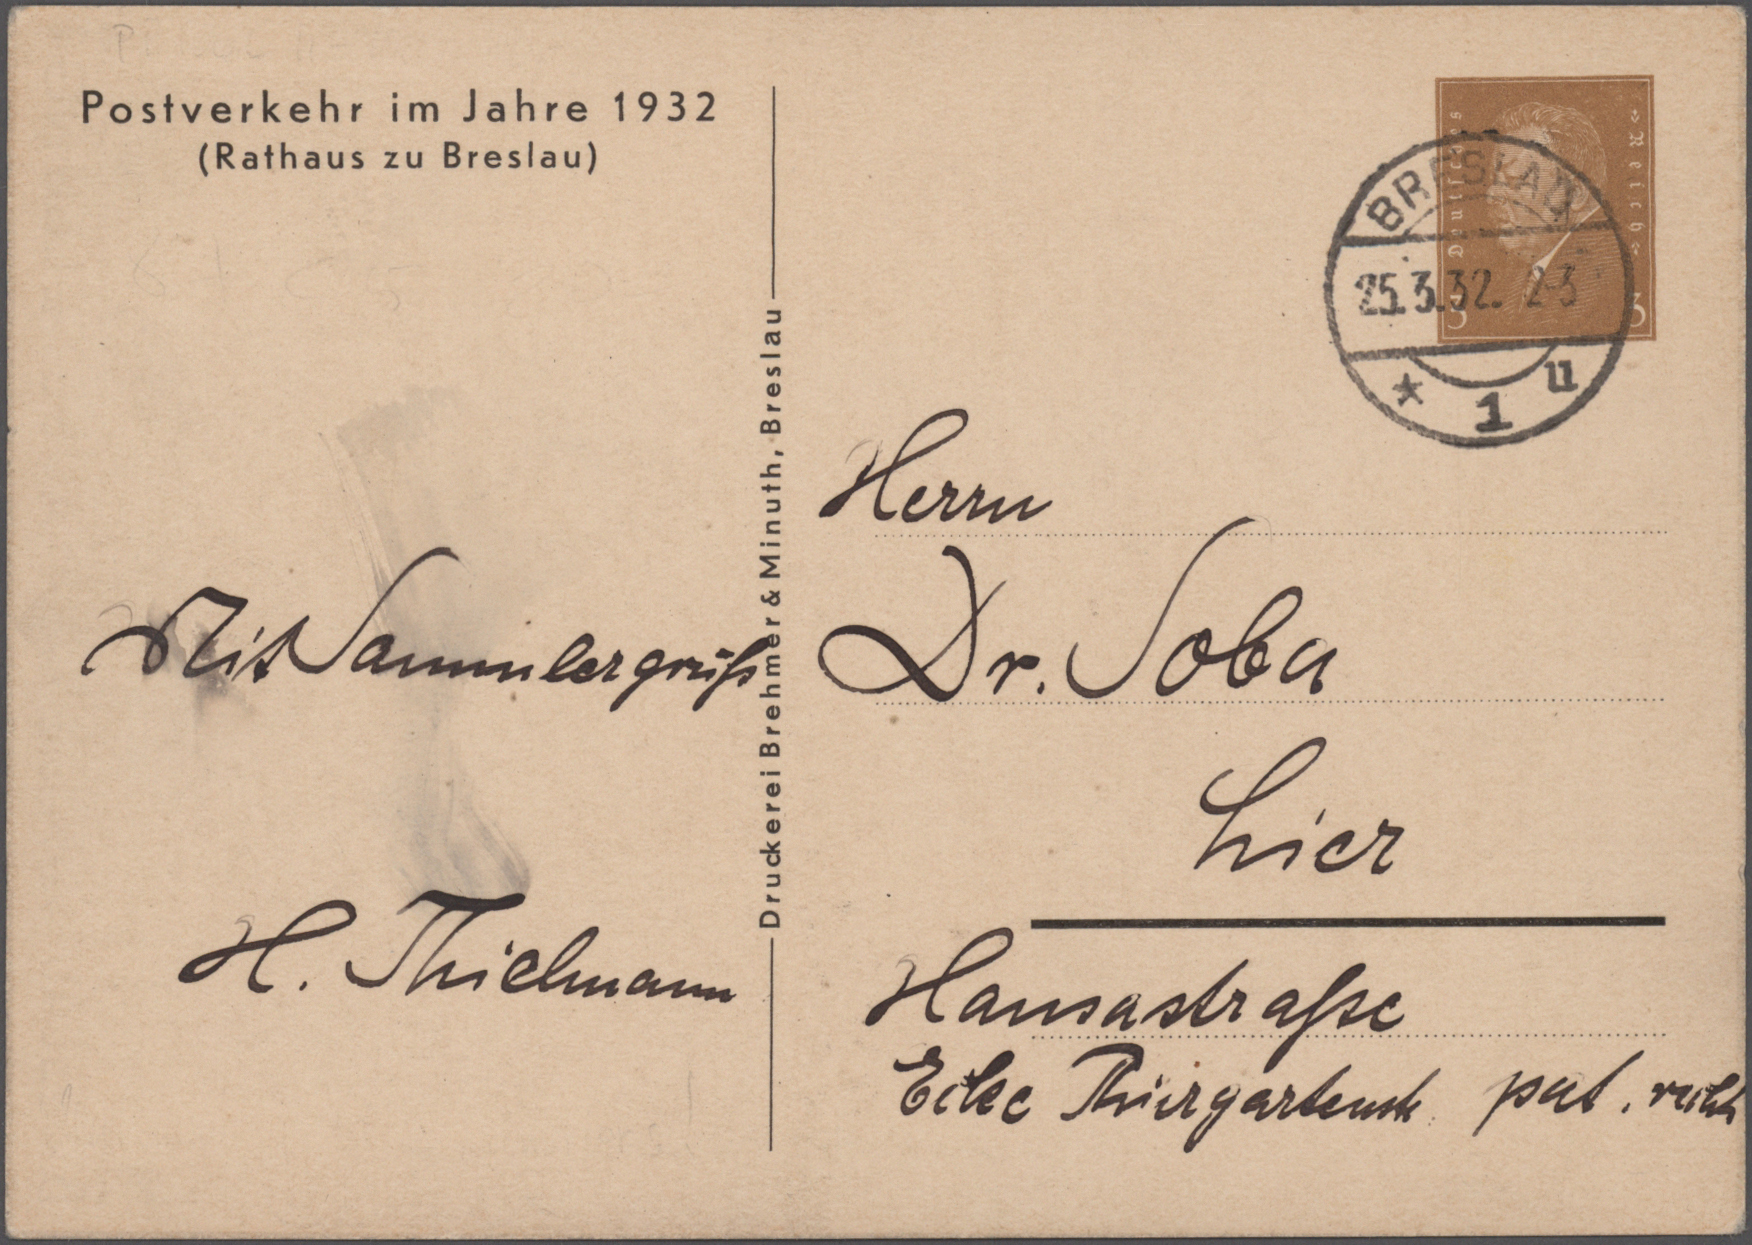 Postverkehr im Jahre 1932
(Rathaus zu Breslau)
Deutsches Reich
3 3
BRESLAU
25.3.32. 2-3
* 1 u
Druckerei Brehmer & Minuth, Breslau
Mit Sammlergruß
H. Thielmann
Herrn
Dr. Soba
hier
Hansastraße
Ecke Thiergartenstr.